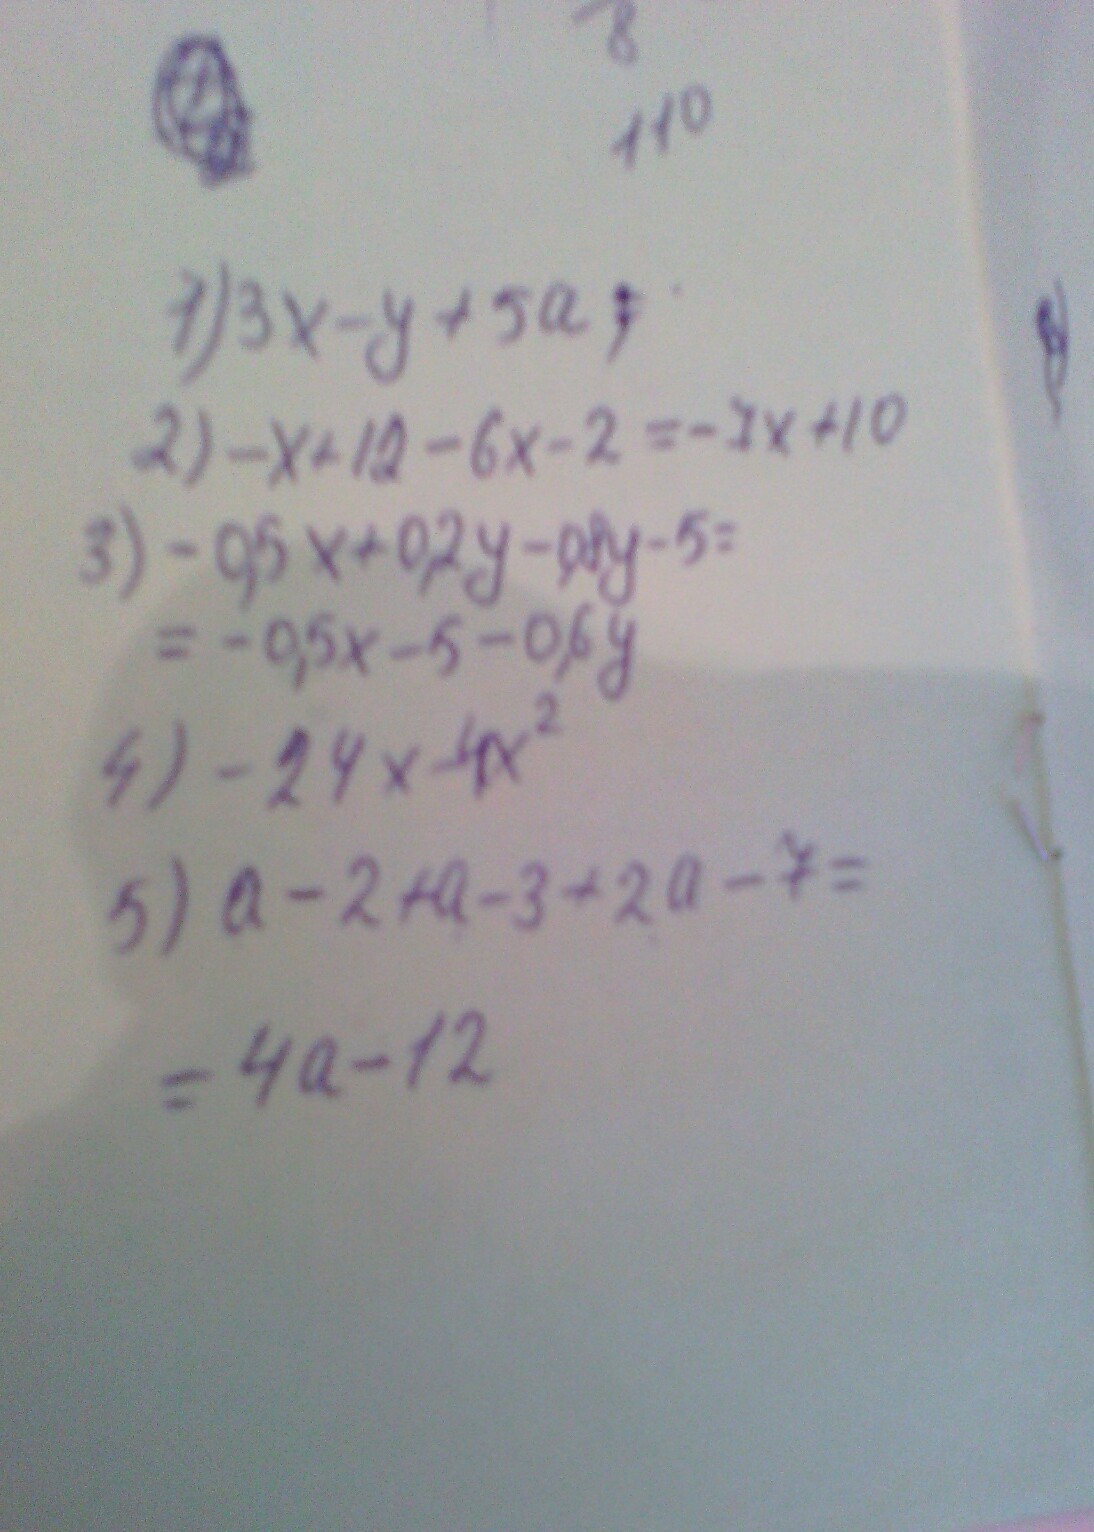 8
110
1) 3x - y + 5a ;
2) -x + 12 - 6x - 2 = -7x + 10
3) - 0,5x + 0,2y - 0,8y - 5 =
= - 0,5x - 5 - 0,6y
4) - 24x - 4x²
5) a - 2 + a - 3 + 2a - 7 =
= 4a - 12